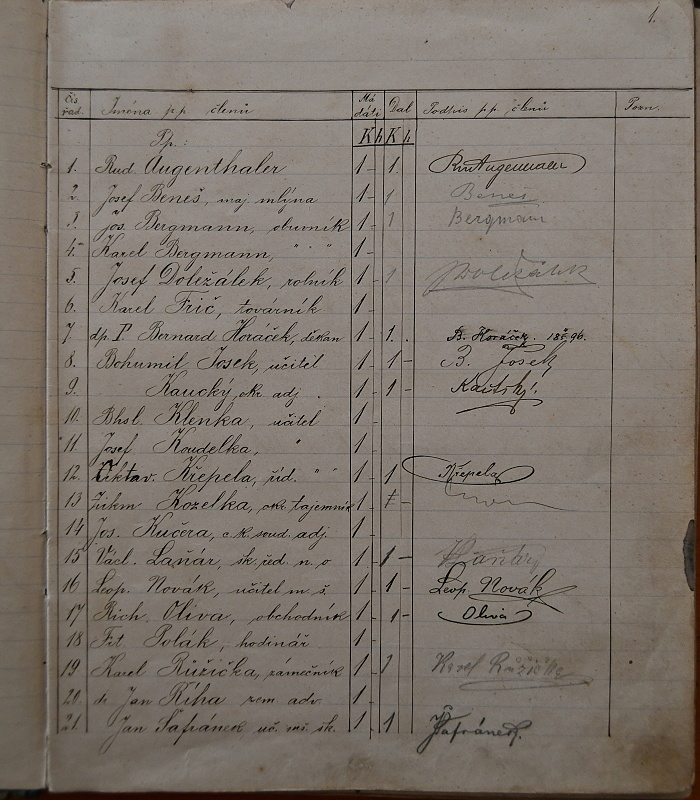 1.
Čís. řad. Jména p.p. členů Má dáti Dal Podpis p.p. členů Pozn.
Pp.: K h K h
1. Rud. Augenthaler 1 - 1. Rud Augenthaler
2. Josef Beneš, maj. mlýna 1 - 1 Beneš
3. Jos. Bergmann, obuvník 1 - 1 Bergmann
4. Karel Bergmann, " " " 1 -
5. Josef Doležálek, rolník 1 - 1 Doležálek
6. Karel Frič, továrník 1 -
7 dp. P. Bernard Horáček, děkan 1 - 1. . B. Horáček.
8. Bohumil Josek, učitel 1 - 1 - B. Josek
9. Kaucký, okr. adj. 1 - 1 - Kautský.
10. Bhsl. Klenka, učitel 1 -
11 Josef Koudelka, " 1 -
12. Křepela, říd. " " 1 - 1 Křepela
13 Kozelka, okr. tajemník 1 - -
14 Jos. Kučera, c.k. soud. adj. 1 -
15 Václ. Laňár, šk. řed. n. o 1 - 1 - Laňár
16 Leop. Novák, učitel m. š. 1 - 1 - Leop. Novák
17 Rich. Oliva, obchodník 1 - 1 - Oliva
18 Frt. Polák, hodinář 1 -
19 Karel Růžička, zámečník 1 - 1 Karel Růžička
20. dr Jan Říha zem. adv. 1 -
21. Jan Šafránek uč. měš. šk. 1 - 1 Šafránek.